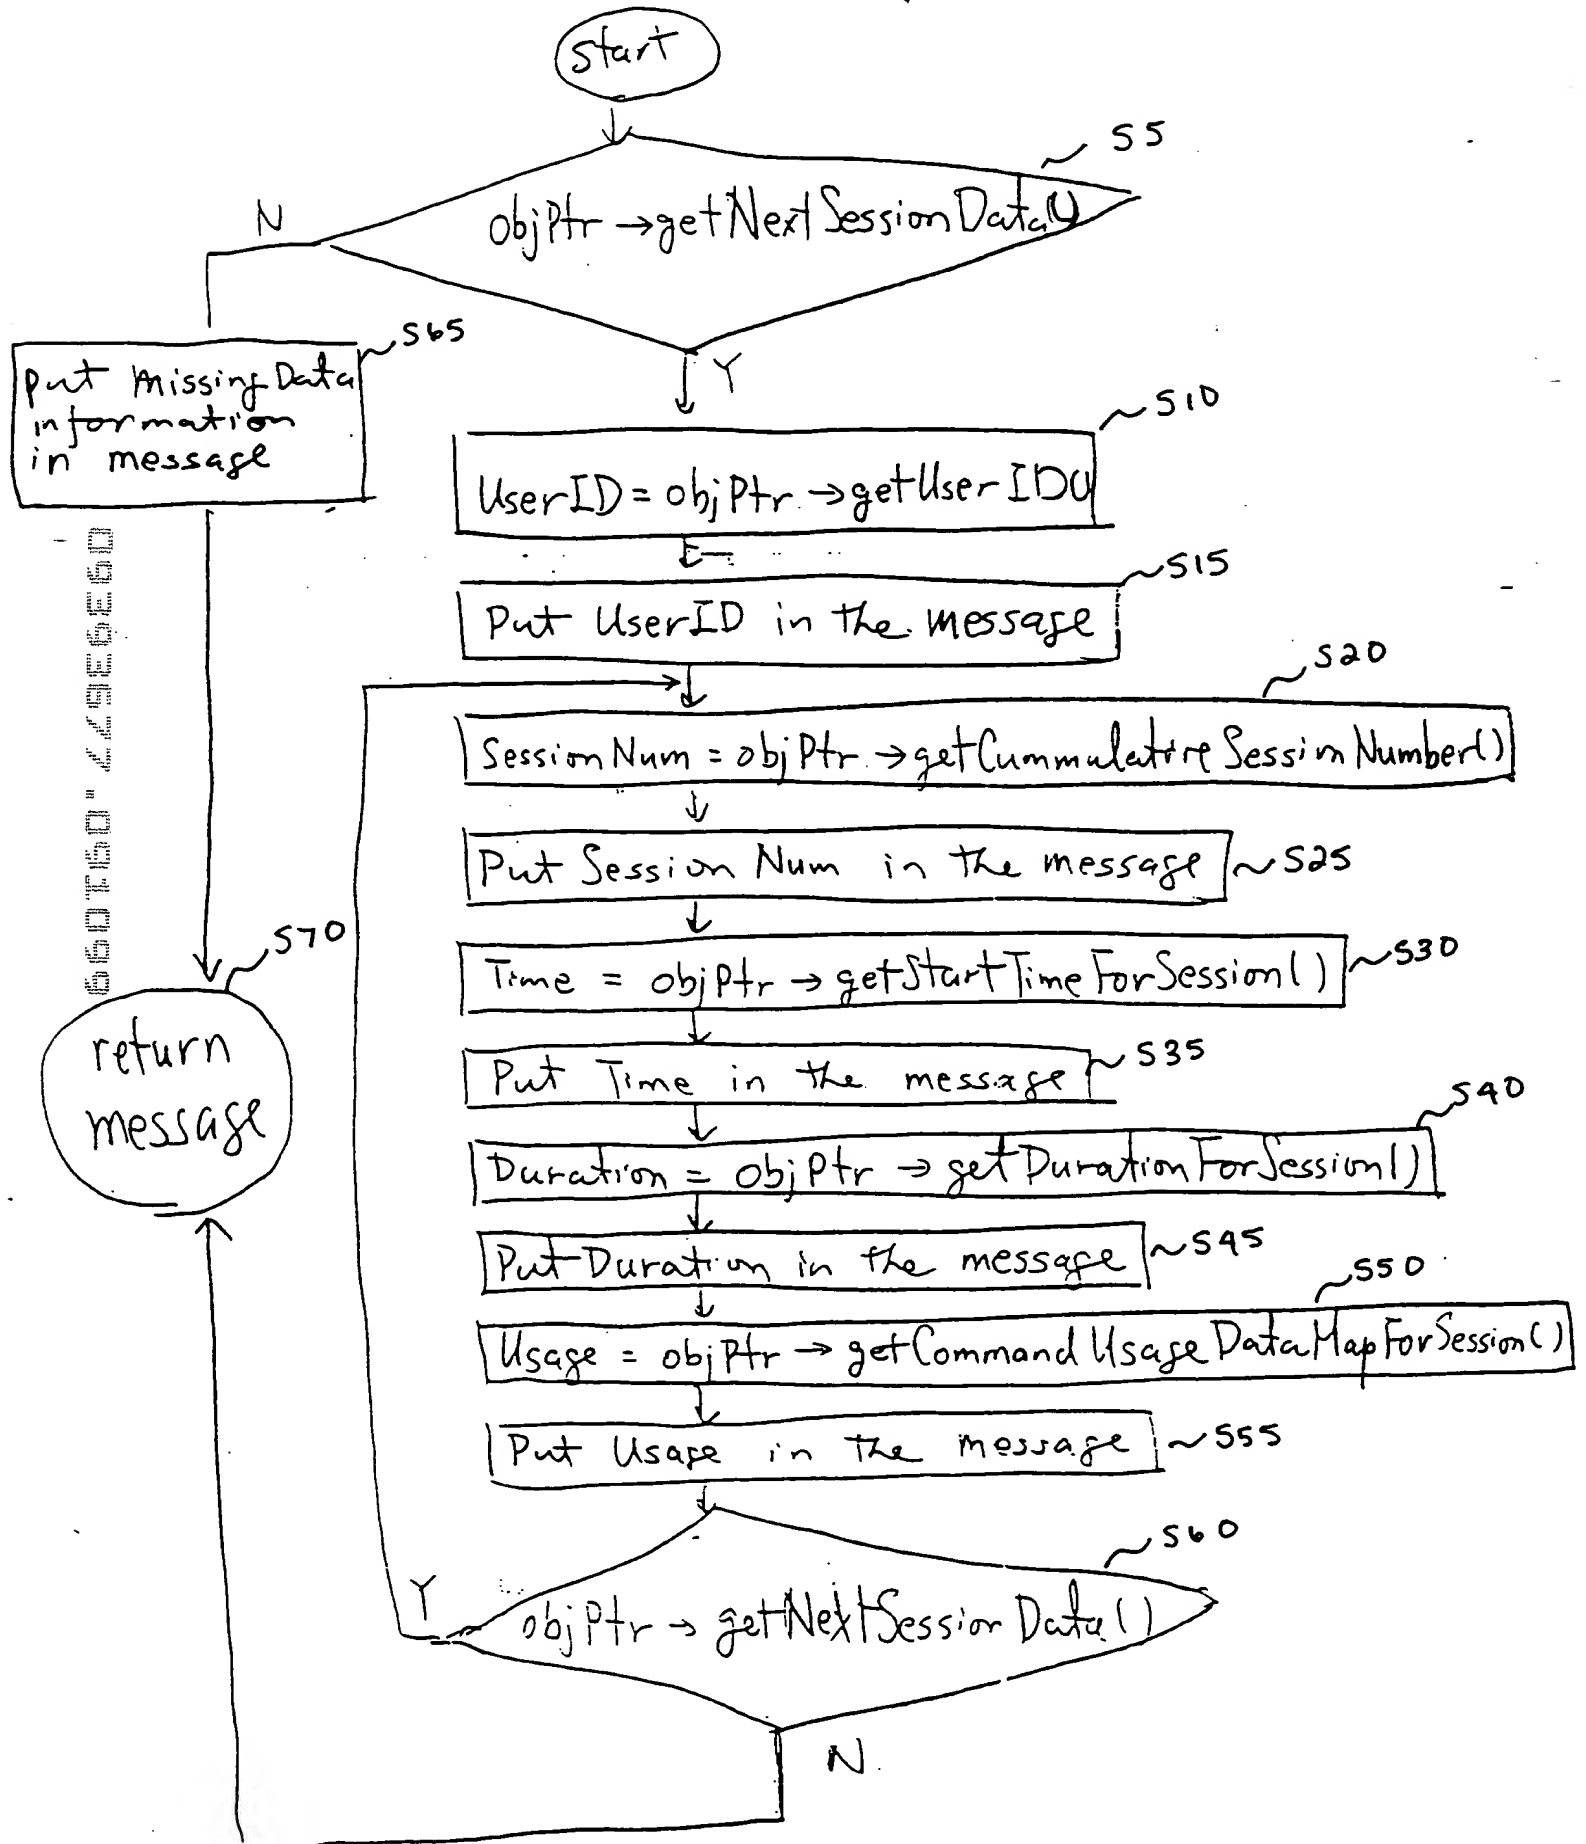 start
S5
N
objPtr → getNextSessionData()
S65
Put Missing Data
information
in message
Y
S10
UserID = objPtr → getUserID()
S15
Put UserID in the message
S20
SessionNum = objPtr → getCummulativeSessionNumber()
Put Session Num in the message
S25
S70
return
message
S30
Time = objPtr → getStartTimeForSession()
S35
Put Time in the message
S40
Duration = objPtr → getDurationForSession()
Put Duration in the message
S45
S50
Usage = objPtr → getCommandUsageDataMapForSession()
Put Usage in the message
S55
S60
Y
objPtr → getNextSessionData()
N